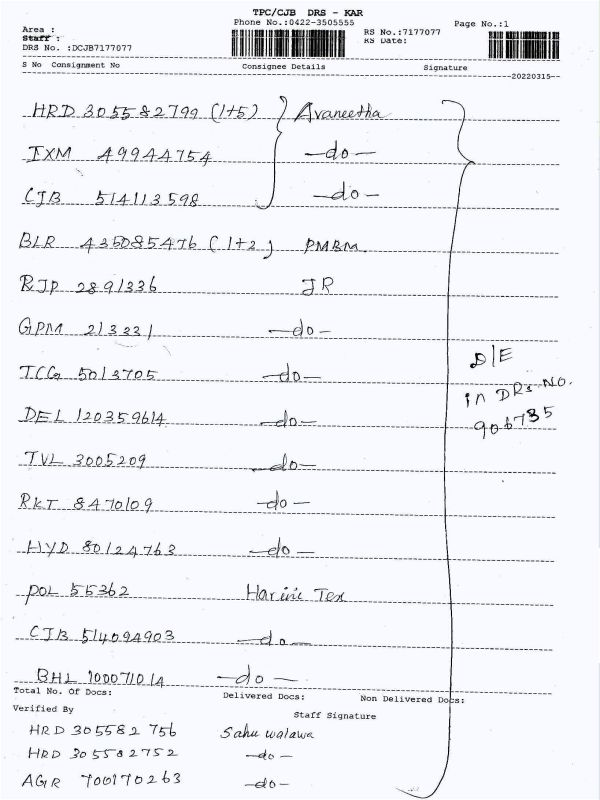 TPC/CJB DRS - KAR
Phone No.:0422-3505555 Page No.:1
Area :
Staff :
RS No.:7177077
DRS No. :DCJB7177077 RS Date:
S No Consignment No Consignee Details Signature
20220315
HRD 305582799 (1+5) Avaneetha
IXM 49944754 -do-
CJB 514113598 -do-
BLR 435085476 (1+2) PMBM
RJP 2891336 JR
GPM 213331 -do-
TCG 5013705 -do-
DEL 120359614 -do-
TVL 3005209 -do-
RKT 8470109 -do-
HYD 80124763 -do-
POL 55362 Harini Tex
CJB 514094903 -do-
BHL 100071014 -do-
D/E
in DRs NO.
906735
Total No. Of Docs: Delivered Docs: Non Delivered Docs:
Verified By Staff Signature
HRD 305582756 Sahu walawa
HRD 305582752 -do-
AGR 700170263 -do-